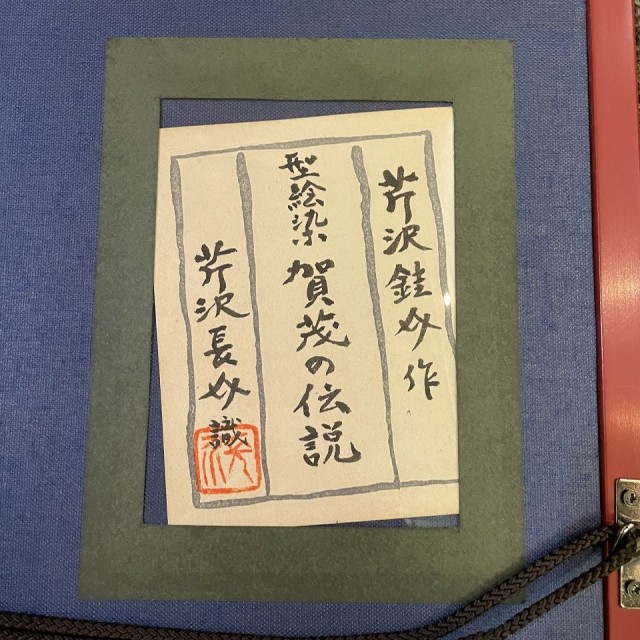 芹沢銈介作
型絵染 賀茂の伝説
芹沢長介識